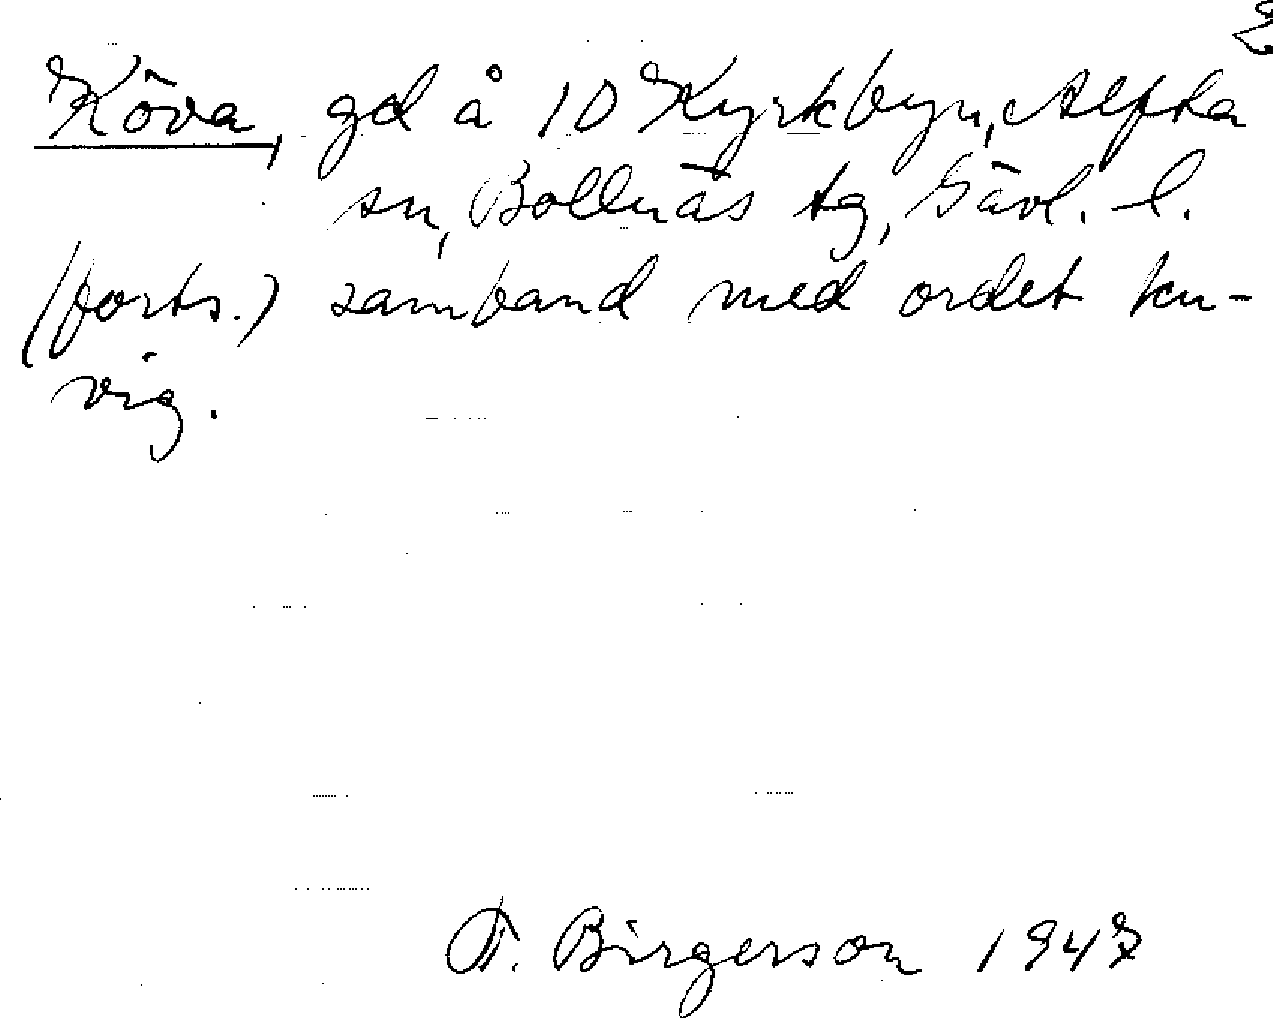 2
Köva, gd å 10 Kyrkbyn, Alfta
sn, Bollnäs tg, Gävl. l.
(forts.) samband med ordet ku-
vig.
F. Birgerson 1947